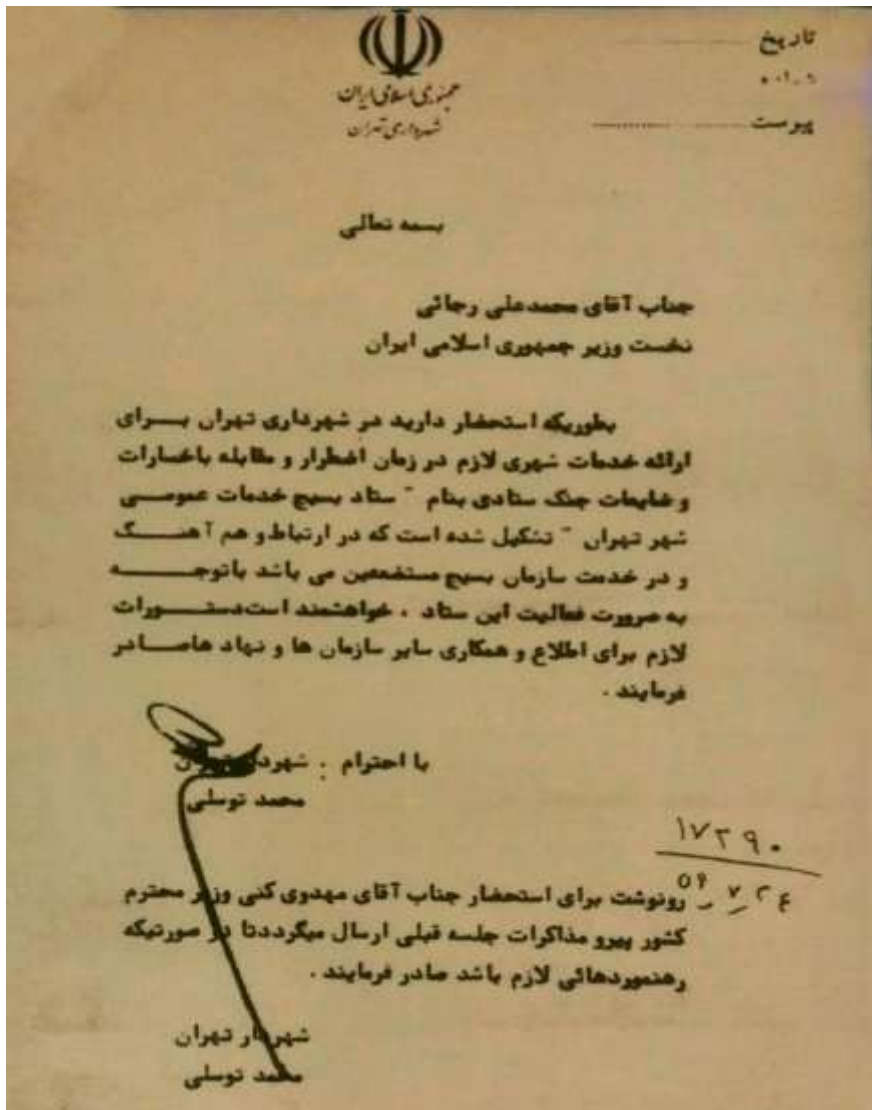 تاریخ
جمهوری اسلامی ایران
شهرداری تهران
پیوست
بسمه تعالی
جناب آقای محمدعلی رجائی
نخست وزیر جمهوری اسلامی ایران
بطوریکه استحضار دارید در شهرداری تهران بـــرای
ارائه خدمات شهری لازم در زمان اضطرار و مقابله باخسارات
و ضایعات جنگ ستادی بنام " ستاد بسیج خدمات عمومـــی
شهر تهران " تشکیل شده است که در ارتباط و هم آهنـــگ
و در خدمت سازمان بسیج مستضعفین می باشد باتوجـــه
به ضرورت فعالیت این ستاد . خواهشمند است دستـــورات
لازم برای اطلاع و همکاری سایر سازمان ها و نهاد هاصـــادر
فرمایند .
با احترام . شهردار تهران
محمد توسلی
۱۷۲۹۰
۵۹_۷_۲۴
رونوشت برای استحضار جناب آقای مهدوی کنی وزیر محترم
کشور پیرو مذاکرات جلسه قبلی ارسال میگرددتا در صورتیکه
رهنمودهائی لازم باشد صادر فرمایند .
شهردار تهران
محمد توسلی